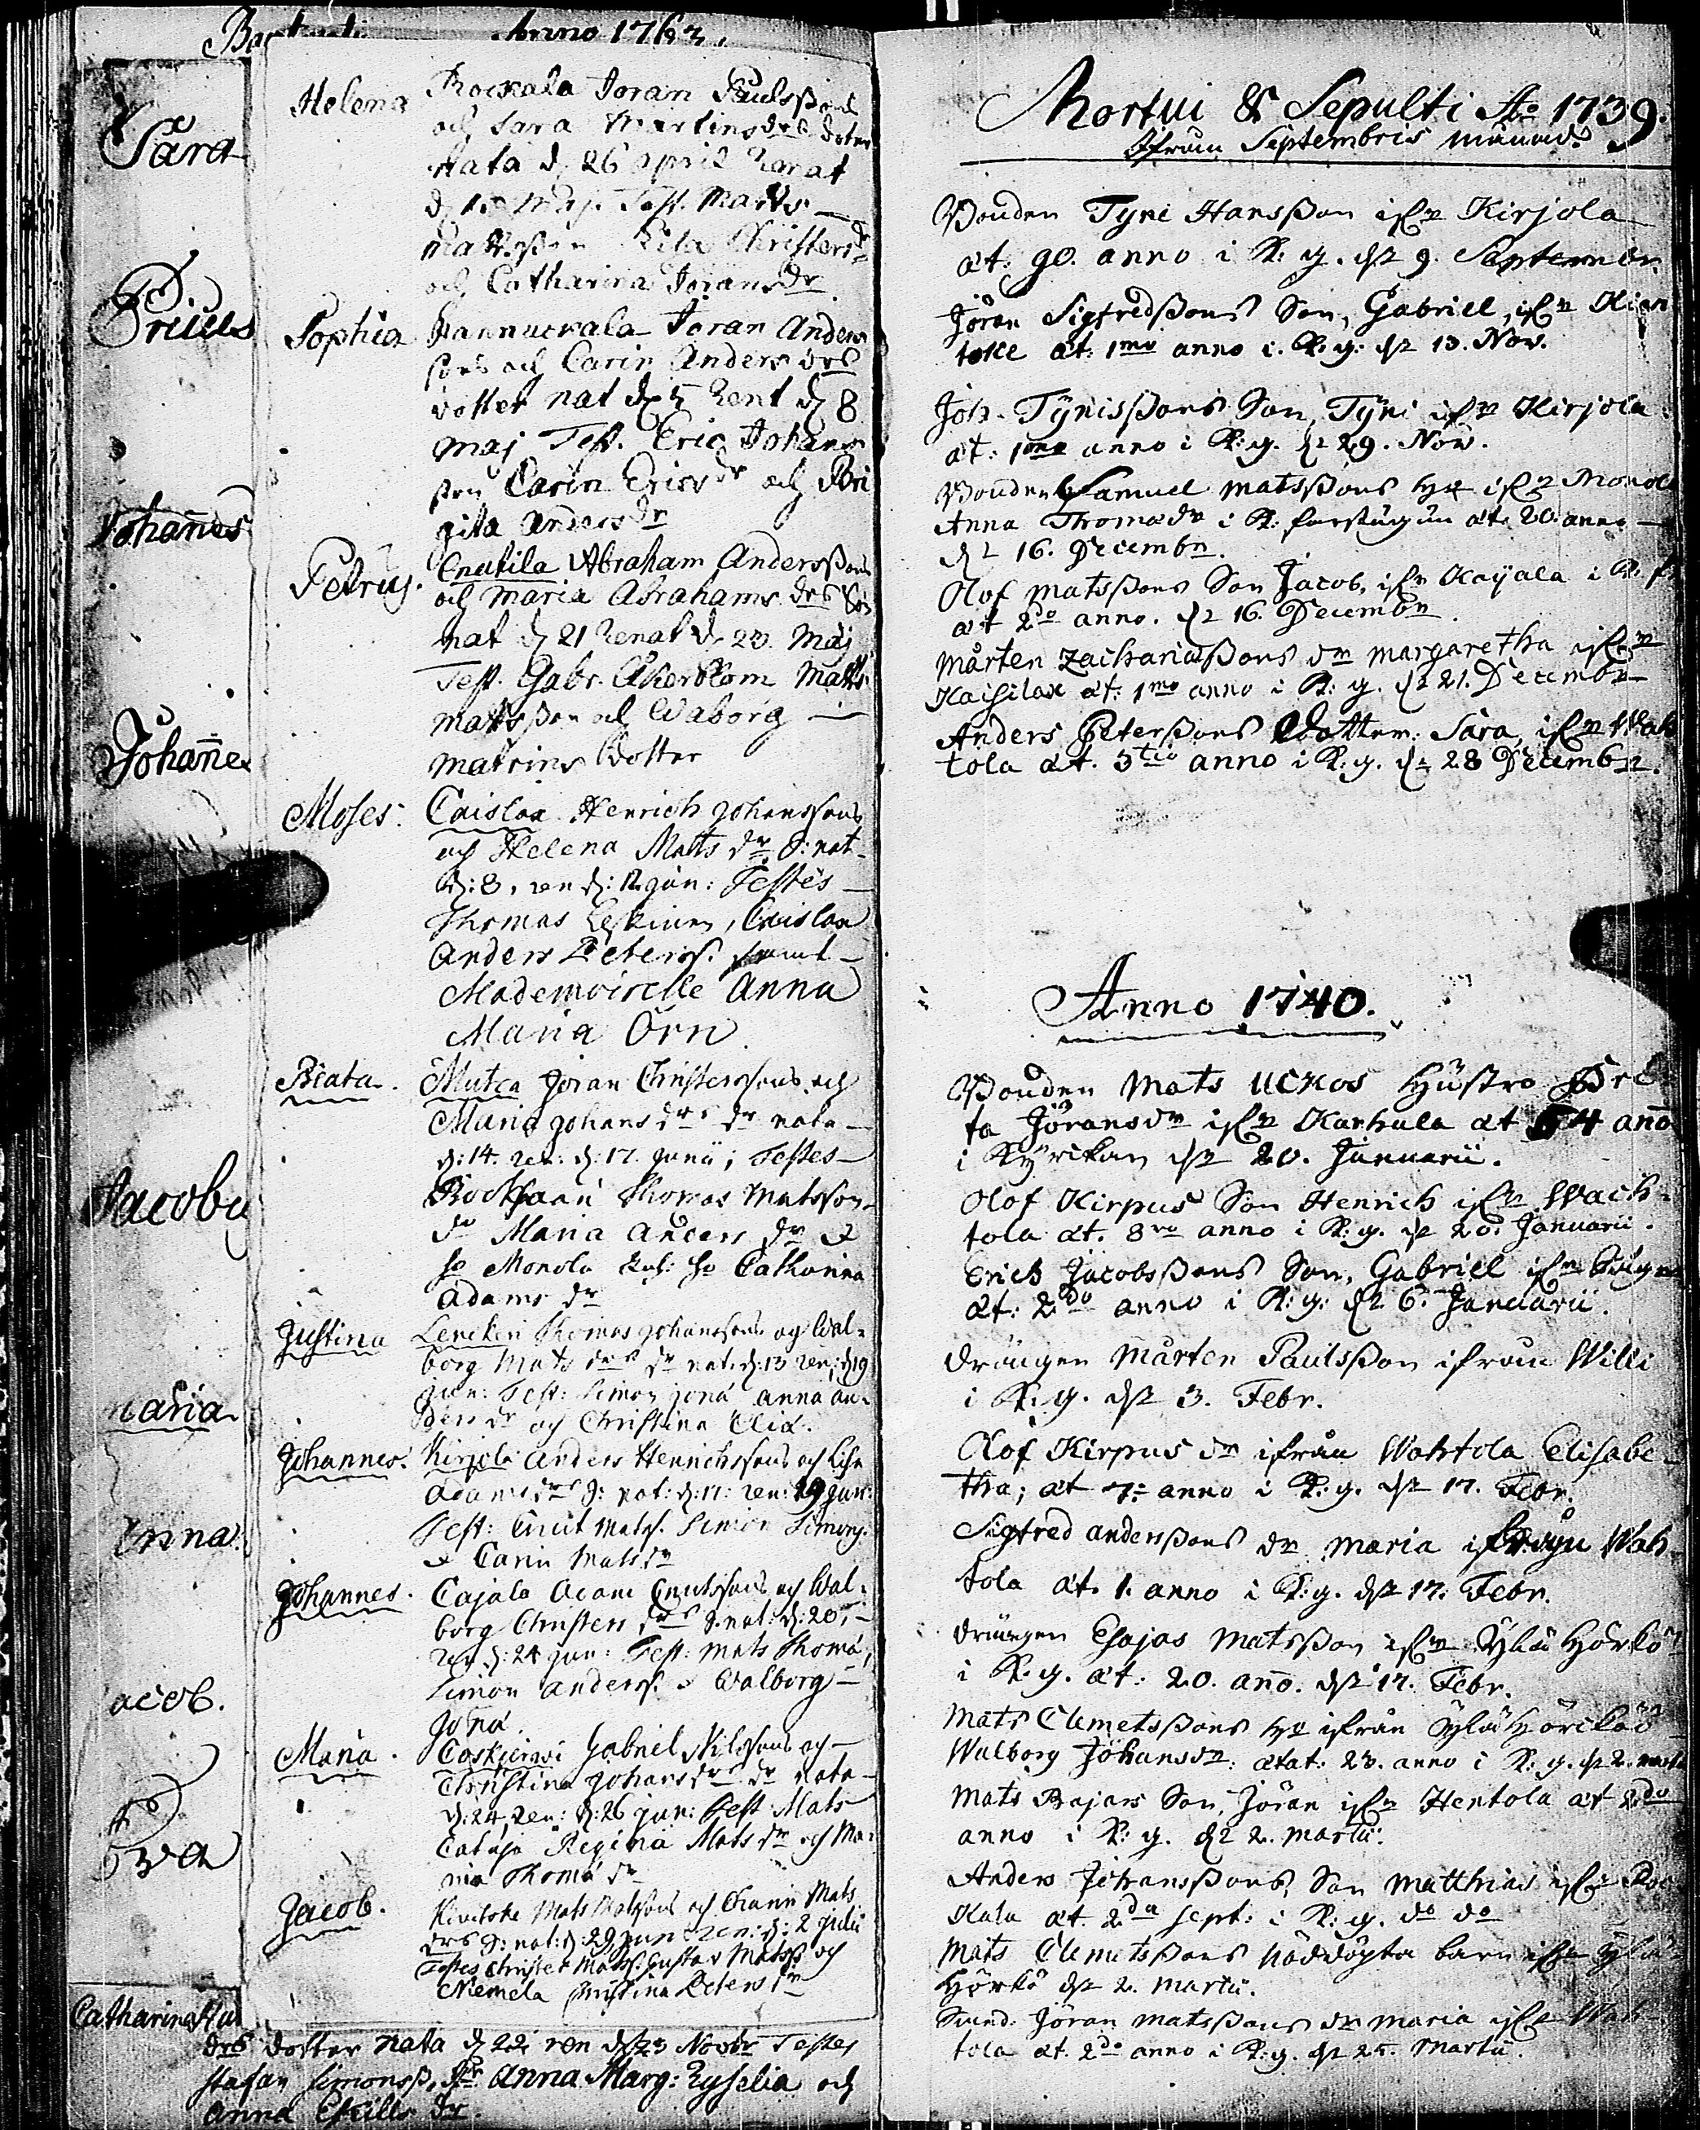 Anno 1763.
Sara
Johanes
Johañe
Jacobu
maria
Anna
acob.
Eva
Catharina
Helena
Rockala Joran Paulsßons
och Sara Martins drs doter
nata d 26 april renat
d 1 Maj. Test. Matts
mattsson Lisa Christersdr
och Catharina Joransdr
Sophia
Pannuckala Joran Anders
sons och Carin Anders drs
dotter nat d 5 rent d 8
Maj Test. Eric Johans
son Carin Ersdr och Bri
gita Andersdr
Petrus.
Cnutila Abraham Andersßons
och Maria Abrahams drs son
nat d 21 renat d 23. Maj
Test. Gabr. Åkerblom Matts
mattsson och Waborg
matrins Dotter
Moses.
Caislax Henrich Johanssons
och Helena Matts dr S: nat.
d: 8, ren d: 12 jun: Testes
Thomas Eskinen, Caislax
Anders Peterss. samt
Mademoiselle Anna
Maria Örn.
Beata.
Mutca Joran Christerssons och
Maria Johans drs dr nata
d: 14. ren: d: 17. Junii; Testes
Thomas Matsson
dr Maria Anders dr &
Monola Catharina
Adams dr
Justina
Lenckeri Thomas Johanssons og Wal-
borg Mats drs dr nat: d: 13 ren: d 19
jun: Test: Simon Jona Anna An-
ders dr och Christina Eliæ.
Johannes.
Kirjola Anders Henrichssons och Lisa
Adams drs S: nat: d: 17: ren: 19 jun:
Test: Cnut Matss. Simon Simons.
& Carin Mats dr
Johannes.
Cajala Adam Cnutssons och Wal-
borg Christers drs S: nat: d: 20,
ren d: 24 jun: Test: Mats Thomæ,
Simon Anderss. & Walborg
Jona.
Maria.
Coskijerwi Gabriel Nilssons och
Christina Johans drs dr nata
d: 24, ren: d: 26 jun: Test Mats
Regina Mats dr och Ma-
ria Thomæ dr
Jacob.
Kivitoke Mats Matssons och Charin Mats
drs S: nat: d 29 jun ren: d: 2 julii
Testes Christer Matss. Gustav Matss och
Niemela Christina Peters dr
drs dotter nata d 22 ren d 23 Novbr Testes
Stafan Simonss, Anna Marg: Zyselia och
Anna Eskills dr.
Mortui & Sepulti Ao 1739.
Ifrån Septembris månad.
Bonden Tyni Hansßon ifrn Kirjola
æt: 90. anno i K: g. d: 9. Septembr.
Jöran Sigfredßons Son, Gabriell, ifrn Kian
toke æt: 1mo anno i. K: g: d: 13. Nov.
Joh. Tynisßons Son, Tyni ifrn Kirjola
æt: 1mo anno i K: g. d: 29. Nov.
Bonden Samuel Matsßons h: ifrn Monola
Anna Thomædr i K: förstugun æt: 20. anno
d: 16. Decembr.
Olof Matsßons Son Jacob, ifrn Kayala i K: f
æt 2do anno. d: 16. Decembr.
Mårten Zachariaßons dr Margaretha ifrn
Kaisilax æt: 1mo anno i K: g. d: 21. Decembr
Anders Petersßons Dotter. Sara, ifrn Wah
tola æt. 3tio anno i K: g. d: 28 Decembr.
Anno 1740.
Bonden Mats Uckos Hustro Bri
ta Jöransdr ifrn Karhula æt 54 anno
i Kyrckan d: 20. Januarii.
Olof Kirpus Son Henrich ifrn Wach-
tola æt. 8vo anno i K: g. d: 20. Januarii.
Erich Jacobsßons Son, Gabriel ifrn
æt: 2do anno i K: g: d: 6. Januarii.
Drängen Mårten Paulsßon ifrån Willi
i K: g. d: 3. Febr.
Olof Kirpus dr ifrån Wahtola Elisabe-
tha; æt 7: anno i K: g. d: 17. Febr.
Sigfred Andersßons dr Maria ifrån Wah
tola æt. 1. anno i K: g. d: 17. Febr.
Drängen Esajas Matsßon ifrn Ylä Hörkö
i K: g. æt: 20. ano. d: 17. Febr.
Mats Clemetsßons h: ifrån Ylä Hörckö
Walborg Johansdr. ætat: 23. anno i K: g. d: 2. marti
Mats Bajars Son, Jöran ifrn Hentola æt 2do
anno i K: g. d: 2. Martii.
Anders Johansßons, Son Matthias ifrn Roc
kala æt. 2da sept: i K: g. do do
Mats Clemetsßons Nöddöpta barn ifrn Ylä
Hörkö d: 2. Martii.
Jöran Matsßons dr Maria ifrn Wah
tola æt. 2do anno i K: g. d: 25. Martii.